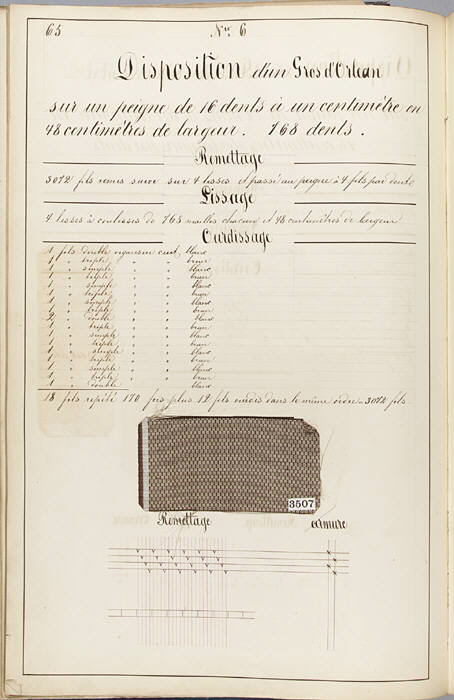 65
Nro 6
Disposition d'un Gros d'Orlean
sur un peigne de 16 dents à un centimètre en
48 centimètres de largeur. 768 dents.
Remettage
3072 fils remis suivi sur 4 lisses et passé au peigne à 4 fils par dents
Lissage
4 lisses à coulisses de 768 mailles chacune et 48 centimètres de largeur
Ourdissage
1 fils double organsin cuit, blanc
1 " triple " " brun
1 " simple " " blanc
1 " triple " " brun
1 " simple " " blanc
1 " triple " " brun
1 " simple " " blanc
1 " triple " " brun
2 " double " " blanc
1 " triple " " brun
1 " simple " " blanc
1 " triple " " brun
1 " simple " " blanc
1 " triple " " brun
1 " simple " " blanc
1 " triple " " brun
1 " double " " blanc
18 fils répété 170 fois plus 12 fils ourdis dans le même ordre = 3072 fils.
3507
Remettage
armure